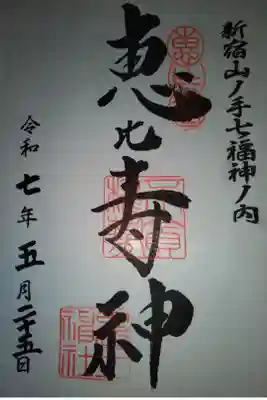 新宿山ノ手七福神ノ内
恵比寿神
令和七年五月二十五日